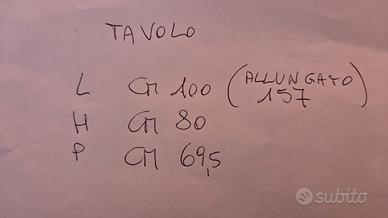 TAVOLO
L CM 100 (ALLUNGATO 157)
H CM 80
P CM 69,5
subito